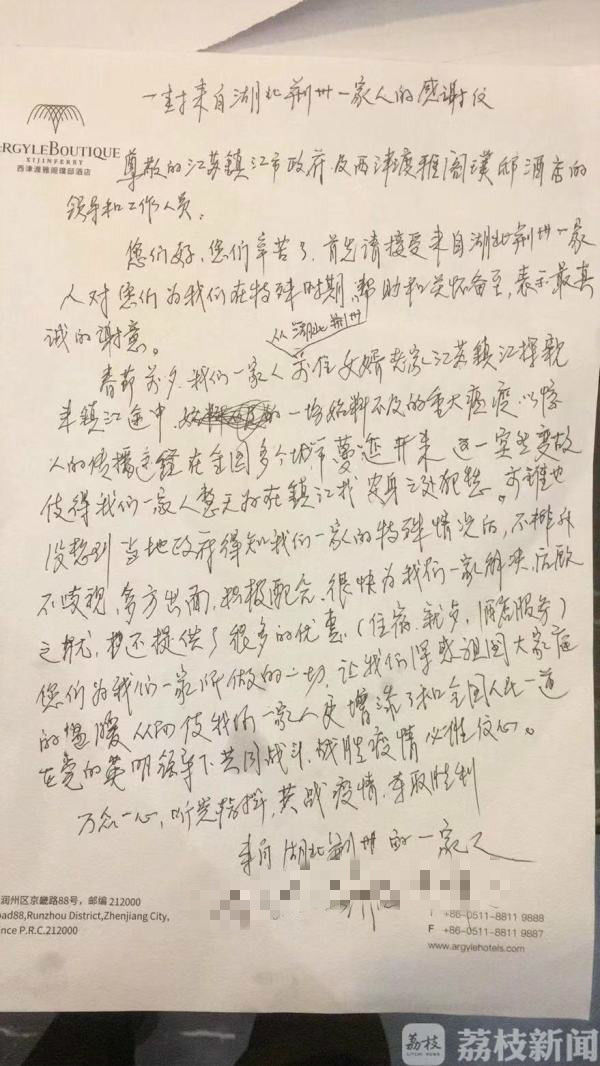 一封来自湖北荆州一家人的感谢信
ARGYLEBOUTIQUE
XIJINFERRY
西津渡雅阁璞邸酒店
尊敬的江苏镇江市政府及西津渡雅阁璞邸酒店的
领导和工作人员:
您们好,您们辛苦了,首先请接受来自湖北荆州一家
人对您们为我们在特殊时期,帮助和关怀备至,表示最真
诚的谢意。
从湖北荆州
春节前夕,我们一家人前往女婿老家江苏镇江探亲
来镇江途中 一场始料不及的重大瘟疫以惊
人的传播途径在全国多个城市蔓延开来 这一突然变故
使得我们一家人整天为在镇江找安身之处犯愁。可谁也
没想到当地政府得知我们一家的特殊情况后,不排斥
不歧视,多方出面,积极配合,很快为我们一家解决后顾
之忧,提供了很多的优惠(住宿、就
您们为我们一家所做的一切,让我们深感祖国大家庭
的温暖从而使我们一家人更增添了和全国人民一道
在党的英明领导下共同战斗,战胜疫情必胜信心。
万众一心,听党指挥,共战疫情,夺取胜利
来自湖北荆州的一家人
润州区京畿路88号,邮编 212000
oad88,Runzhou District,Zhenjiang City,
nce P.R.C.212000
T +86-0511-8811 9888
F +86-0511-8811 9887
www.argylehotels.com
荔枝
LITCHI NEWS
荔枝新闻